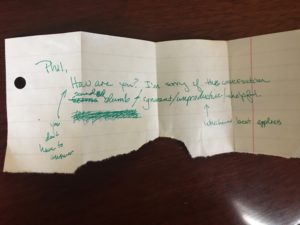 Phil,
How are you? I'm sorry if this conversation
sounded dumb + ignorant/unproductive/unhelpful
you
don't
have to
answer
whichever best applies